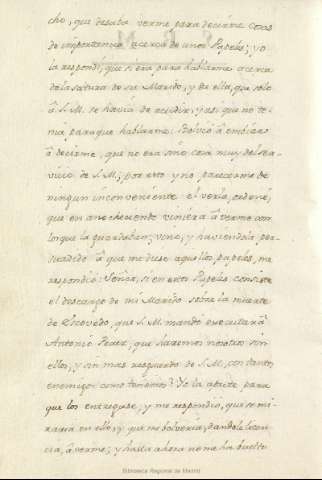 cho, que deseaba verme para decirme cosas
de importancia acerca de unos Papeles; yo
la respondí, que si era para hablarme acerca
de la soltura de su Marido, y de ella, que solo
â S. M. se havia de acudir, y asi que no te-
nia para que hablarme. Bolvió a embiar
â decirme, que no era sino cosa muy del ser-
vicio de S. M.; por esto y no parecerme de
ningun inconveniente el verla, ordené,
que en anocheciendo viniera â verme con
los que la guardaban; vino, y haviendola per-
suadido â que me diese aquellos papeles, me
respondió: Señor, si en estos Papeles consiste
el descargo de mi Marido sobre la muerte
de Escovedo, que S. M. mandó executar â
Antonio Perez, que haremos nosotros sin
ellos, y sin mas resguardo de S. M., con tantos
enemigos como tenemos? Yo la apreté para
que los entregase, y me respondió, que se mi-
raria en ello, y que me bolveria, dandole licen-
cia, â verme; y hasta ahora no me ha buelto
Biblioteca Regional de Madrid